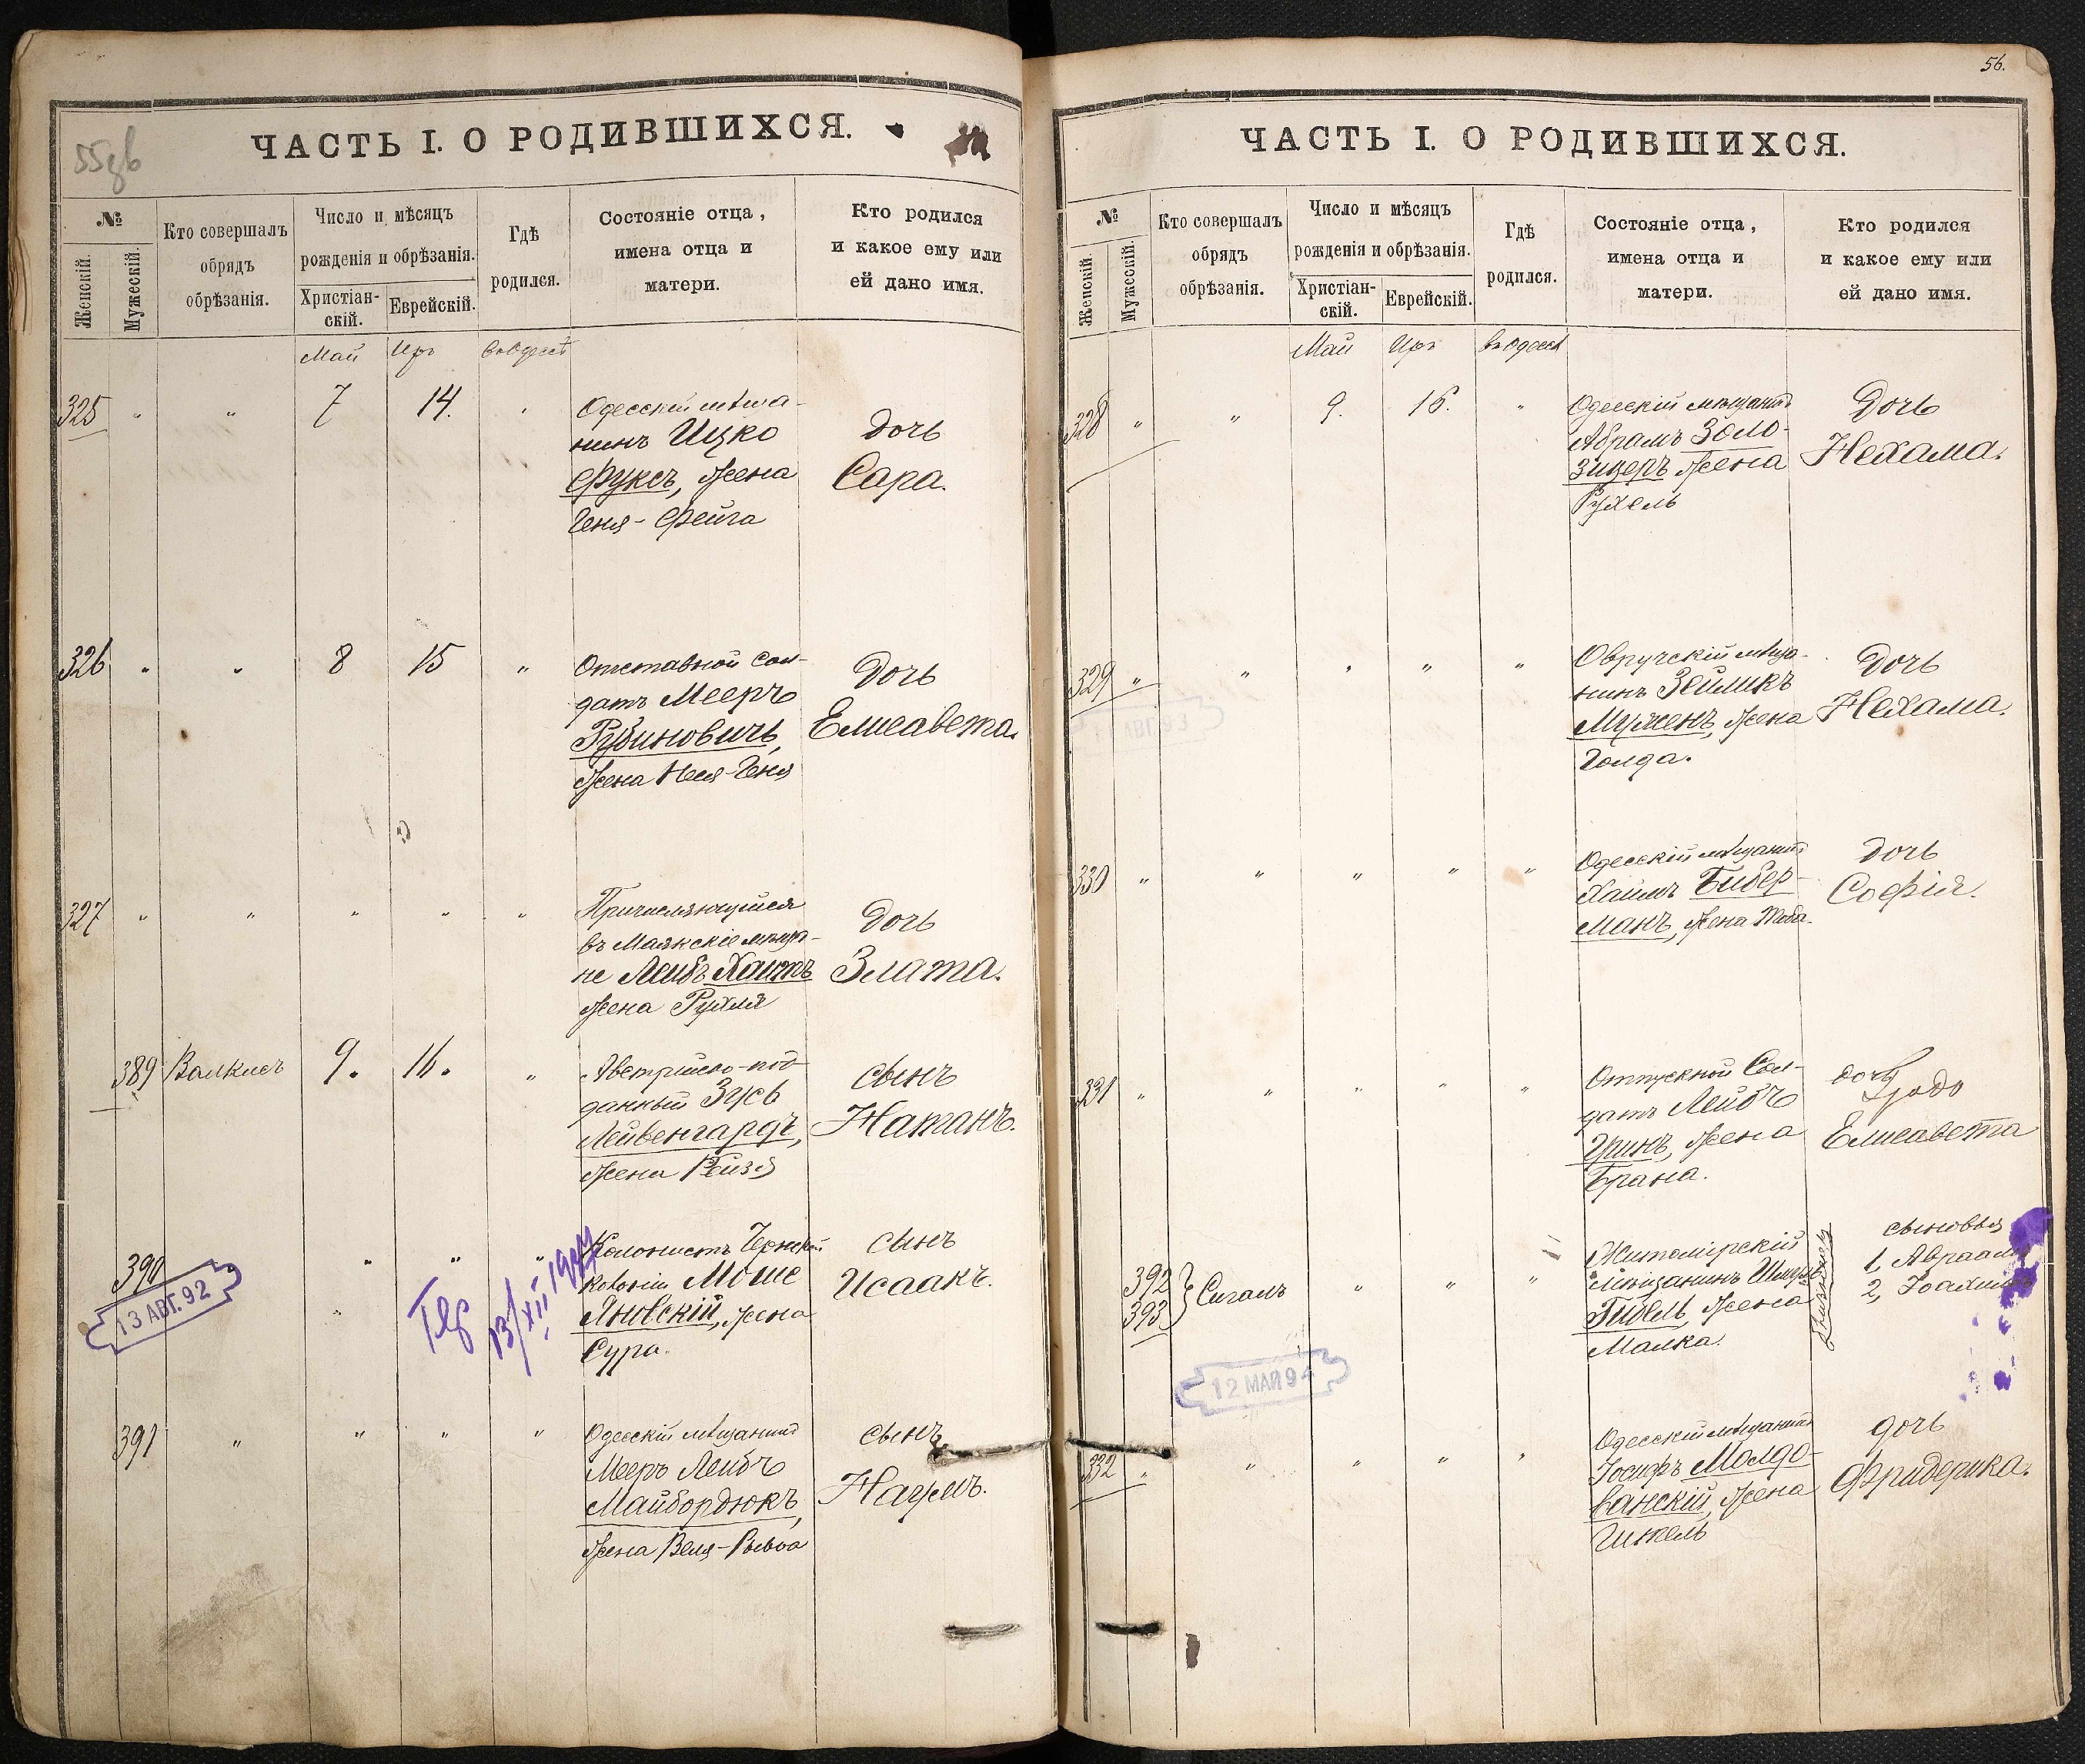 55зв
ЧАСТЬ I. О РОДИВШИХСЯ.
№
Женскій.
Мужескій.
Кто совершалъ
обрядъ
обрѣзанія.
Число и мѣсяцъ
рожденія и обрѣзанія.
Христіан-
скій.
Еврейскій.
Гдѣ
родился.
Состояніе отца,
имена отца и
матери.
Кто родился
и какое ему или
ей дано имя.
Май Иръ въ Одессѣ
325 " " 7 14. "
Одесскій мѣща-
нинъ Ицко
Фуксъ, жена
Геня-Фейга
Дочь
Сара.
326 " " 8 15 "
Отставной сол-
датъ Мееръ
Рубиновичъ,
жена Неся-Геня
Дочь
Елисавета.
327 " " " " "
Причисляющійся
въ Маякскіе мѣща-
не Лейбъ Хаитъ
жена Рухля
Дочь
Злата.
389 Валкисъ 9. 16. "
Австрійско-под
данный Зусь
Лейвенгардъ,
жена Рейзя
сынъ
Натанъ.
390 " " "
Колонистъ
колоніи Моше
Яновскій, жена
Сура.
сынъ
Исаакъ.
13 АВГ. 92
13/XII 1947
391 " " " "
Одесскій мѣщанинъ
Мееръ Лейбъ
Майбордюкъ,
жена Веля-Ривка
сынъ
Наумъ.
56.
ЧАСТЬ I. О РОДИВШИХСЯ.
№
Женскій.
Мужескій.
Кто совершалъ
обрядъ
обрѣзанія.
Число и мѣсяцъ
рожденія и обрѣзанія.
Христіан-
скій.
Еврейскій.
Гдѣ
родился.
Состояніе отца,
имена отца и
матери.
Кто родился
и какое ему или
ей дано имя.
Май Иръ въ Одессѣ
328 " " 9. 16. "
Одесскій мѣщанинъ
Абрамъ Золо-
зицеръ жена
Рухель
Дочь
Нехама.
329 " " " " "
Овручскій мѣща-
нинъ Зейликъ
жена
Голда.
Дочь
Нехама.
АВГ. 93
330 " " " " "
Одесскій мѣщанинъ
Хаимъ Бибер-
манъ, жена Тоба.
Дочь
Софія.
331 " " " " "
Отпускной Сол-
датъ Лейбъ
Гринъ, жена
Брана.
дочь
Елисавета
392
393 Сигалъ " " "
Житомірскій
мѣщанинъ
жена
Малка.
близнецы
сыновья
1, Авраамъ
2, Іоахимъ
12 МАЙ 94
332 " " " " "
Одесскій мѣщанинъ
Іосифъ Молдо-
ванскій, жена
Гитель
дочь
Фридерика.